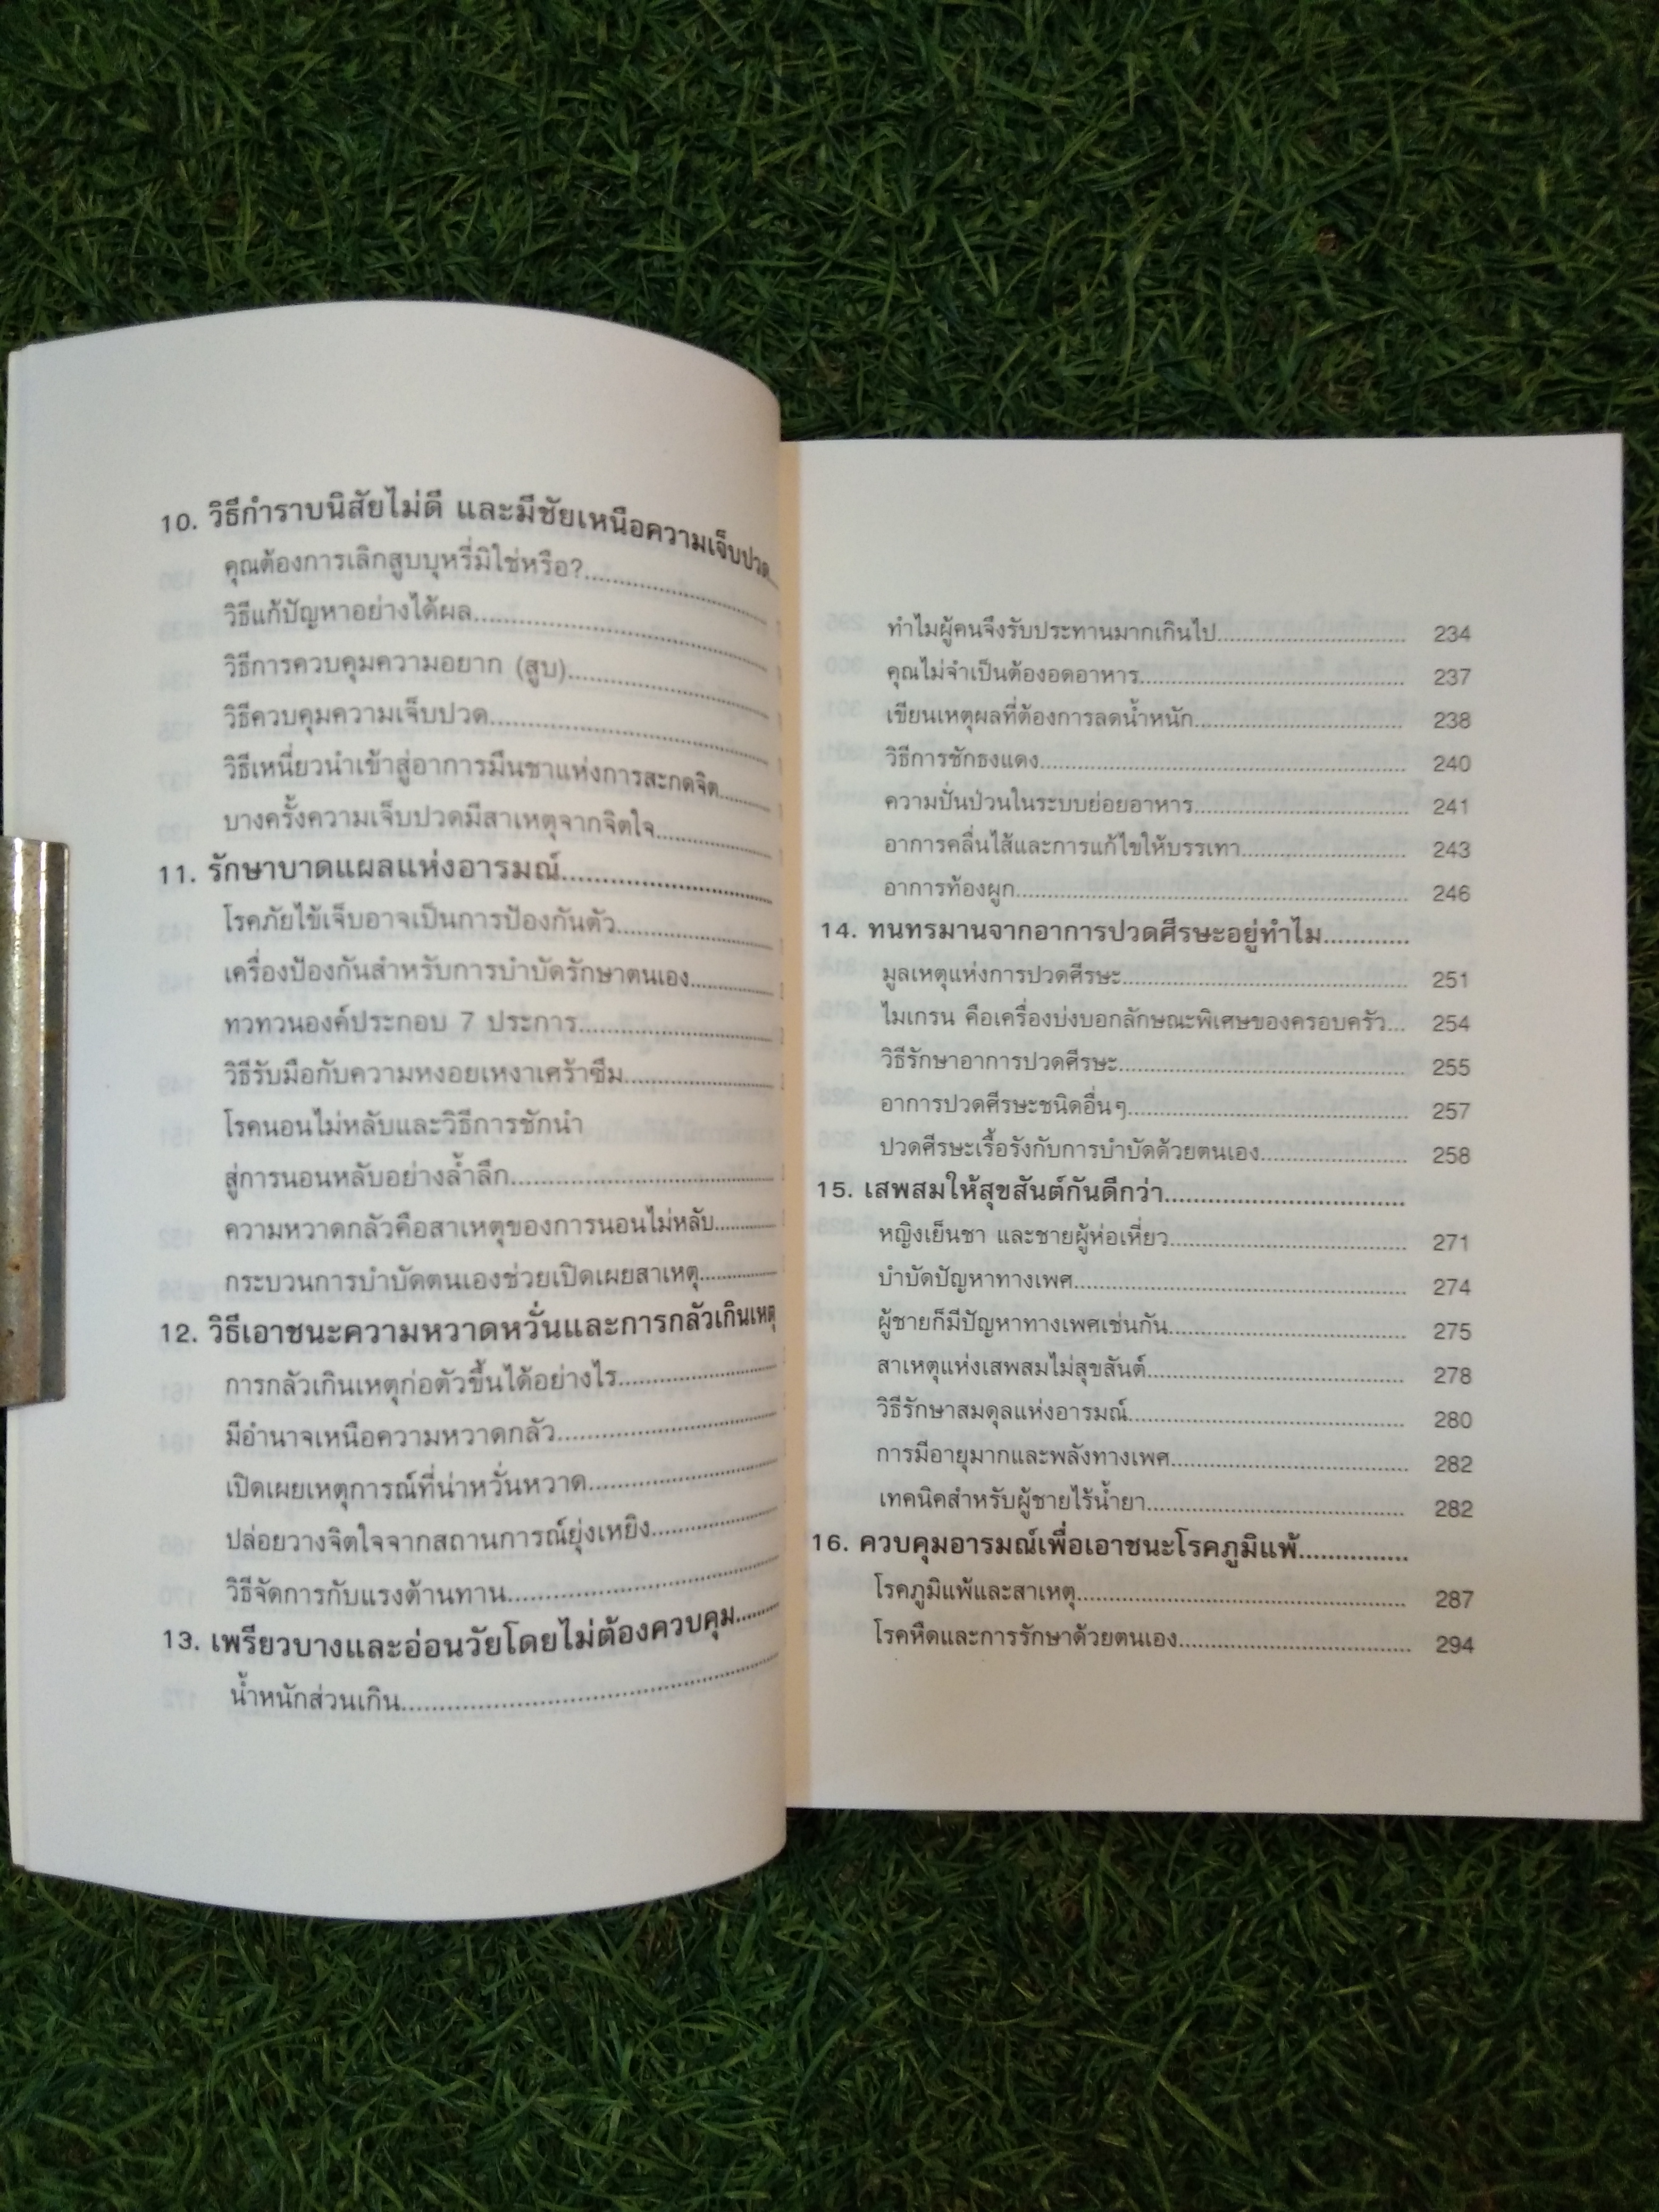 10. วิธีกำราบนิสัยไม่ดี และมีชัยเหนือความเจ็บปวด...
คุณต้องการเลิกสูบบุหรี่มิใช่หรือ?...
วิธีแก้ปัญหาอย่างได้ผล...
วิธีการควบคุมความอยาก (สูบ)...
วิธีควบคุมความเจ็บปวด...
วิธีเหนี่ยวนำเข้าสู่อาการมึนชาแห่งการสะกดจิต...
บางครั้งความเจ็บปวดมีสาเหตุจากจิตใจ...
11. รักษาบาดแผลแห่งอารมณ์...
โรคภัยไข้เจ็บอาจเป็นการป้องกันตัว...
เครื่องป้องกันสำหรับการบำบัดรักษาตนเอง...
ทวทวนองค์ประกอบ 7 ประการ...
วิธีรับมือกับความหงอยเหงาเศร้าซึม...
โรคนอนไม่หลับและวิธีการชักนำ
สู่การนอนหลับอย่างล้ำลึก...
ความหวาดกลัวคือสาเหตุของการนอนไม่หลับ...
กระบวนการบำบัดตนเองช่วยเปิดเผยสาเหตุ...
12. วิธีเอาชนะความหวาดหวั่นและการกลัวเกินเหตุ
การกลัวเกินเหตุก่อตัวขึ้นได้อย่างไร...
มีอำนาจเหนือความหวาดกลัว...
เปิดเผยเหตุการณ์ที่น่าหวั่นหวาด...
ปล่อยวางจิตใจจากสถานการณ์ยุ่งเหยิง...
วิธีจัดการกับแรงต้านทาน...
13. เพรียวบางและอ่อนวัยโดยไม่ต้องควบคุม...
น้ำหนักส่วนเกิน...
ทำไมผู้คนจึงรับประทานมากเกินไป... 234
คุณไม่จำเป็นต้องอดอาหาร... 237
เขียนเหตุผลที่ต้องการลดน้ำหนัก... 238
วิธีการชักธงแดง... 240
ความปั่นป่วนในระบบย่อยอาหาร... 241
อาการคลื่นไส้และการแก้ไขให้บรรเทา... 243
อาการท้องผูก... 246
14. ทนทรมานจากอาการปวดศีรษะอยู่ทำไม...
มูลเหตุแห่งการปวดศีรษะ... 251
ไมเกรน คือเครื่องบ่งบอกลักษณะพิเศษของครอบครัว... 254
วิธีรักษาอาการปวดศีรษะ... 255
อาการปวดศีรษะชนิดอื่นๆ... 257
ปวดศีรษะเรื้อรังกับการบำบัดด้วยตนเอง... 258
15. เสพสมให้สุขสันต์กันดีกว่า...
หญิงเย็นชา และชายผู้ห่อเหี่ยว... 271
บำบัดปัญหาทางเพศ... 274
ผู้ชายก็มีปัญหาทางเพศเช่นกัน... 275
สาเหตุแห่งเสพสมไม่สุขสันต์... 278
วิธีรักษาสมดุลแห่งอารมณ์... 280
การมีอายุมากและพลังทางเพศ... 282
เทคนิคสำหรับผู้ชายไร้น้ำยา... 282
16. ควบคุมอารมณ์เพื่อเอาชนะโรคภูมิแพ้...
โรคภูมิแพ้และสาเหตุ... 287
โรคหืดและการรักษาด้วยตนเอง... 294